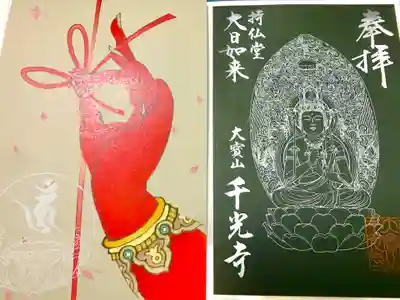 奉拝
持仏堂
大日如来
大寳山
千光寺